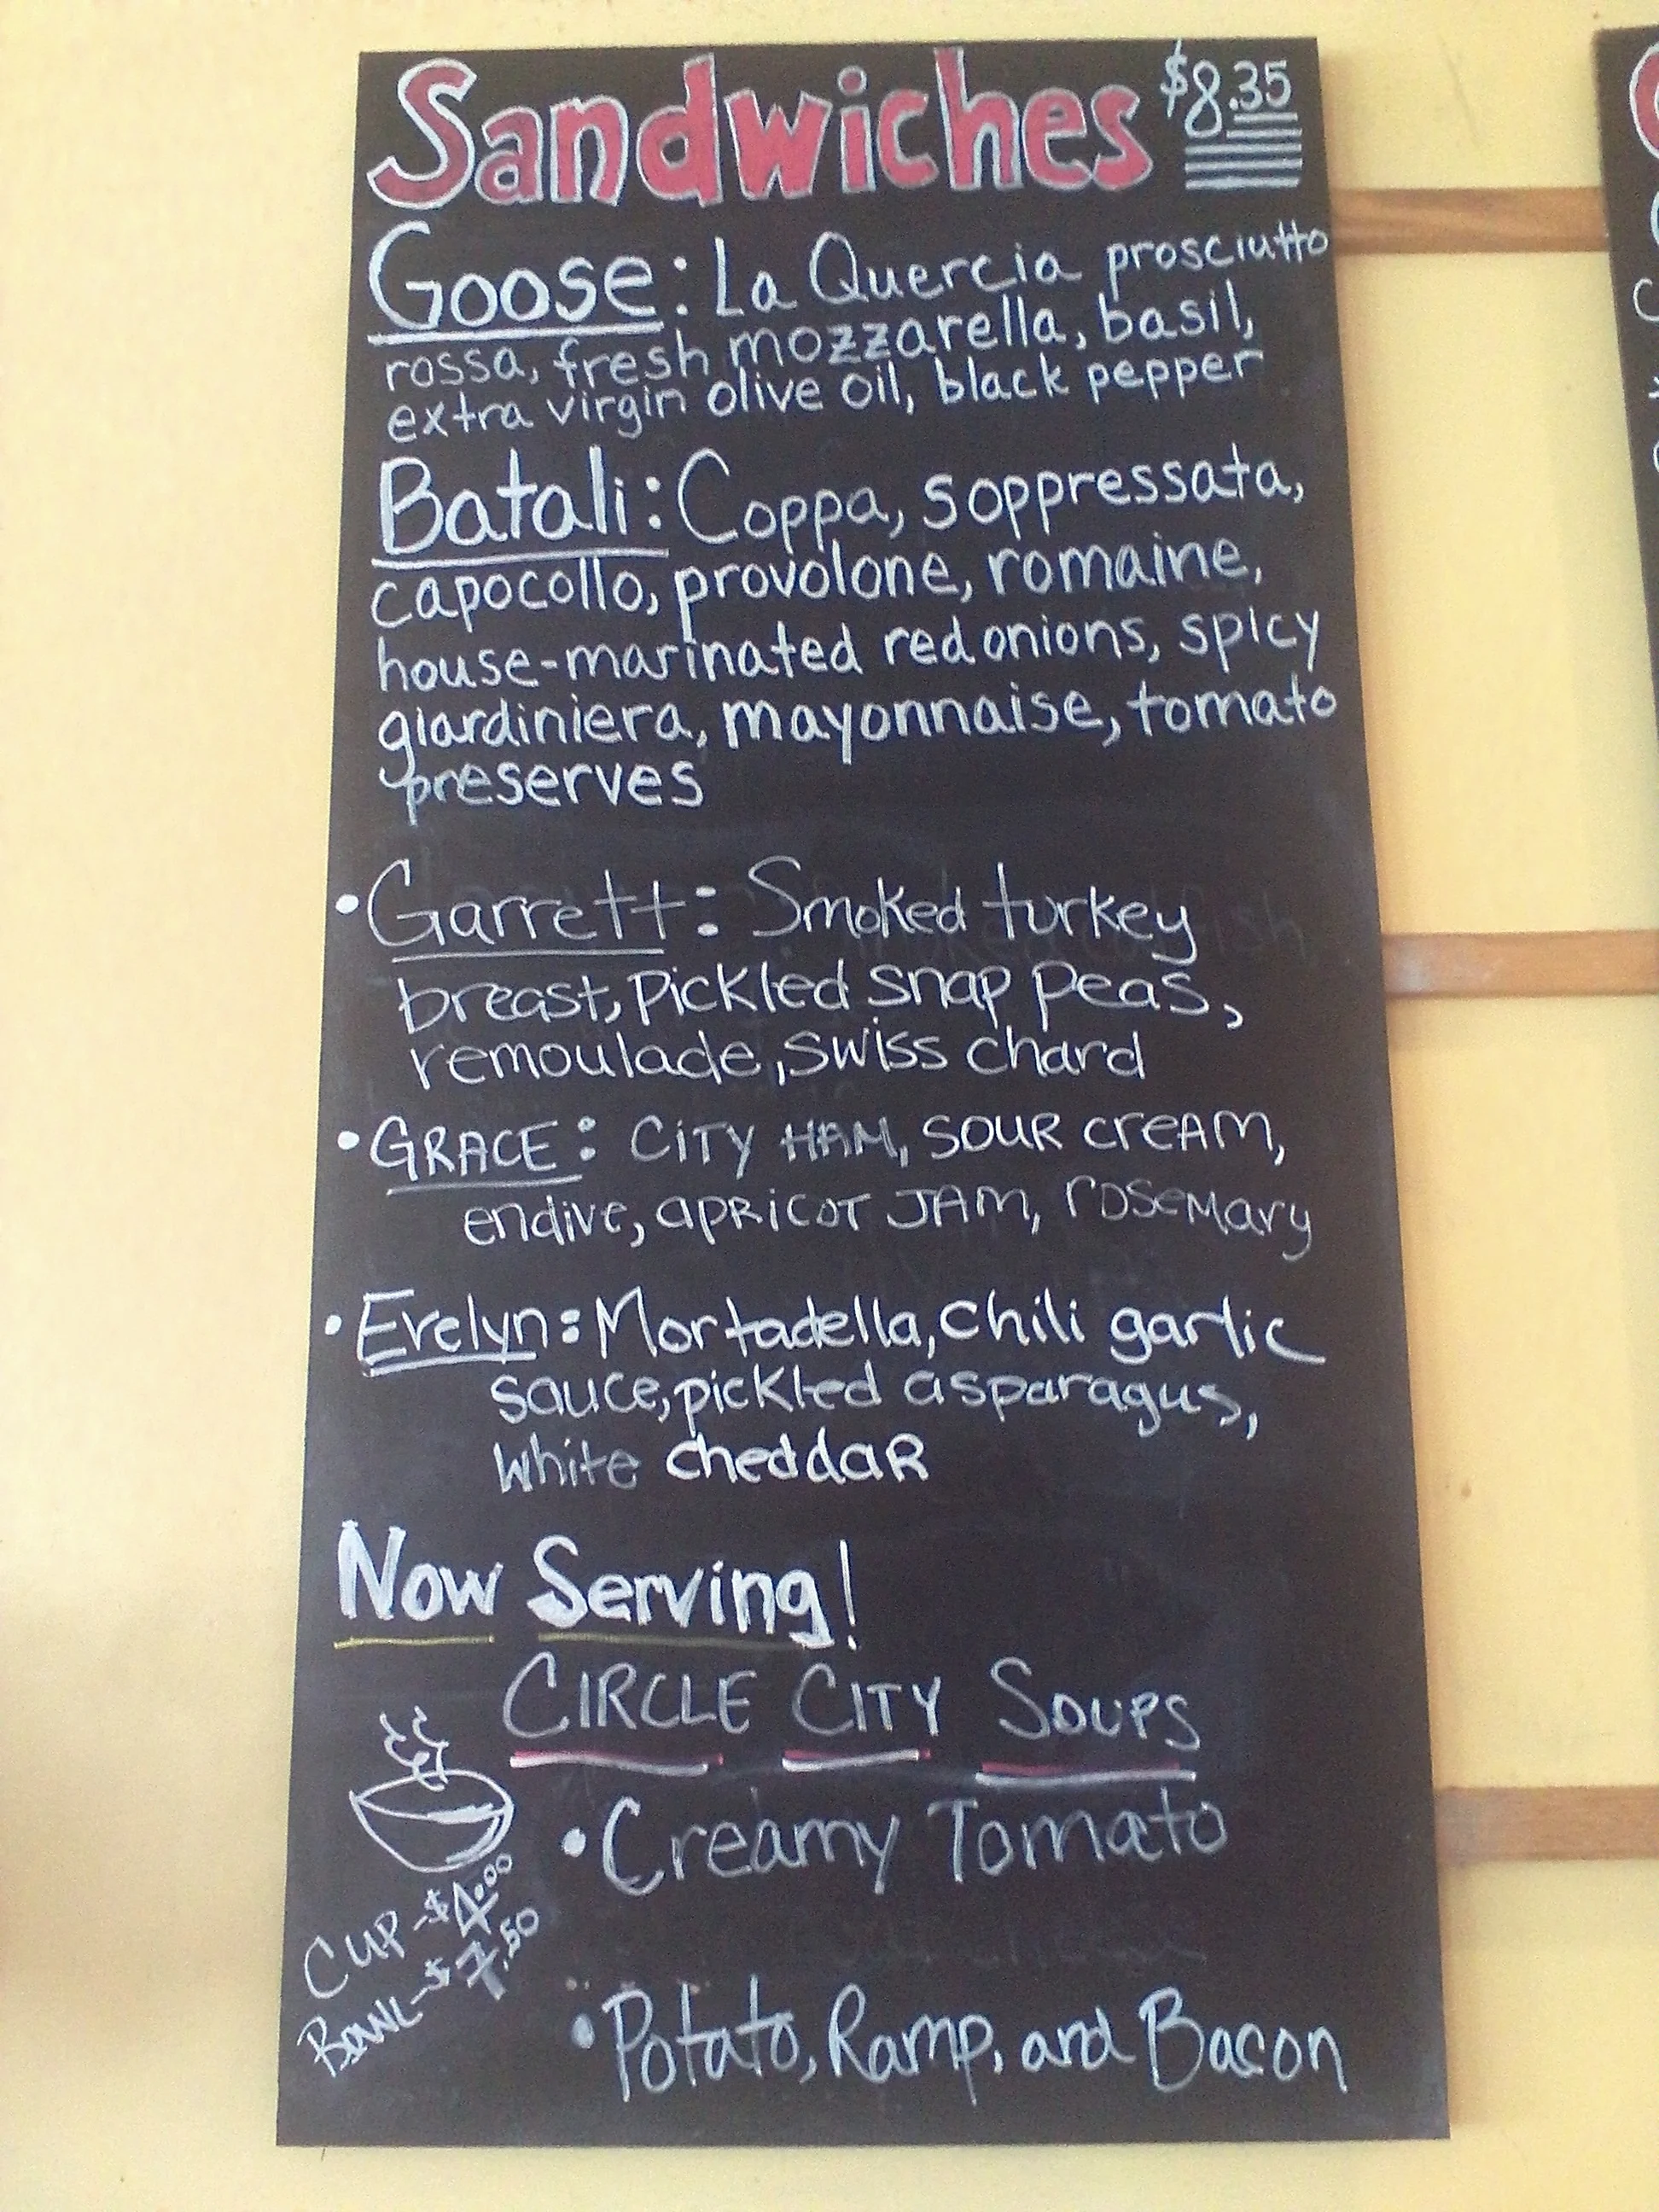 Sandwiches $8.35
Goose: La Quercia prosciutto
rossa, fresh mozzarella, basil,
extra virgin olive oil, black pepper
Batali: Coppa, soppressata,
capocollo, provolone, romaine,
house-marinated red onions, spicy
giardiniera, mayonnaise, tomato
preserves
• Garrett: Smoked turkey
breast, Pickled snap peas,
remoulade, swiss chard
• GRACE: CiTY HAM, SOUR CreAM,
endive, aPRiCOT JAM, rOSeMary
• Evelyn: Mortadella, chili garlic
sauce, pickled asparagus,
white cheddaR
Now Serving!
CIRCLE CITY SOUPS
• Creamy Tomato
CUP - $4.00
BOWL - $7.50
• Potato, Ramp, and Bacon